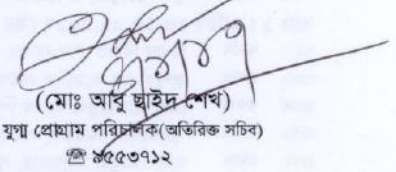 (মোঃ আবু ছাইদ শেখ)
যুগ্ম প্রোগ্রাম পরিচালক(অতিরিক্ত সচিব)
☎ ৯৫৫৩৭১২